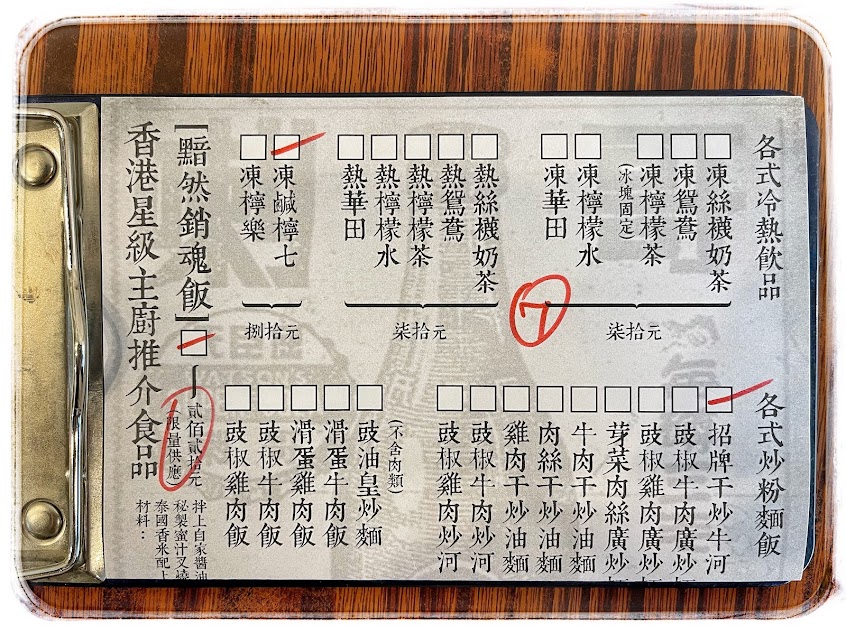 各式冷熱飲品
凍絲襪奶茶
凍鴛鴦
凍檸檬茶
(冰塊固定)
凍檸檬水
凍華田
柒拾元
7
熱絲襪奶茶
熱鴛鴦
熱檸檬茶
熱檸檬水
熱華田
柒拾元
凍鹹檸七
凍檸樂
捌拾元
各式炒粉麵飯
招牌干炒牛河
豉椒牛肉廣炒
豉椒雞肉廣炒
芽菜肉絲廣炒
牛肉干炒油麵
肉絲干炒油麵
雞肉干炒油麵
豉椒牛肉炒河
豉椒雞肉炒河
(不含肉類)
豉油皇炒麵
滑蛋牛肉飯
滑蛋雞肉飯
豉椒牛肉飯
豉椒雞肉飯
香港星級主廚推介食品
[黯然銷魂飯]
貳佰貳拾元
(限量供應)
材料：
泰國香米配上
秘製蜜汁叉燒
拌上自家醬油